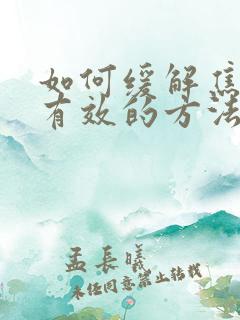 如何缓解焦
有效的方法
孟长曦
未经同意禁止转载